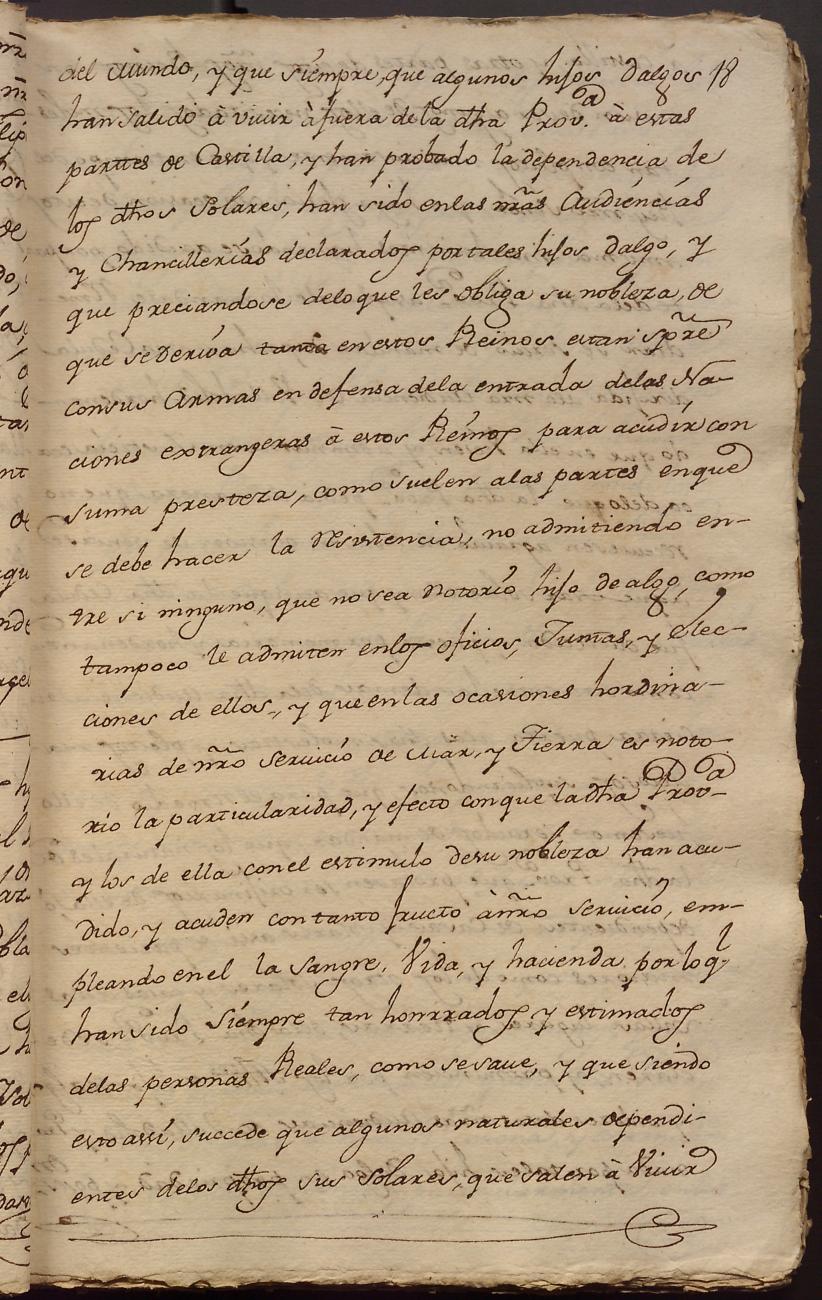 del Mundo, y que siempre, que algunos hijos dalgos 18
han salido à vivir àfuera de la dha Prov.ª à estas
parttes de Castilla, y han probado la dependencia de
los dhos Solares, han sido en las nr̃as Audiencias
y Chancillerías declarados por tales hijos dalgo, y
que preciandose de lo que les obliga su nobleza, de
que se Deriva tanta en estos Reinos, estan spr̃e
con sus Armas en defensa de la entrada de las Na-
ciones extrangeras à estos Reinos para acudir con
suma presteza, como suelen a las partes en que
se debe hacer la resistencia, no admitiendo en-
tre si ninguno, que no sea Notorio hijo de algo, como
tampoco le admiten en los oficios, Juntas, y Elec-
ciones de ellos, y que en las ocasiones hordina-
rias de nr̃o servicio de Mar, y Tierra es noto-
rio la particularidad, y efecto con que la dha Prov.ª
y los de ella con el estimulo de su nobleza han acu-
dido, y acuden con tanto fructo à nr̃o servicio, em-
pleando en el la sangre, Vida, y hacienda por lo q.l
han sido siempre tan honrrados y estimados
de las personas Reales, como se save, y que siendo
esto assí, succede que algunos naturales dependi-
entes de los dhos sus Solares, que salen à Vivir